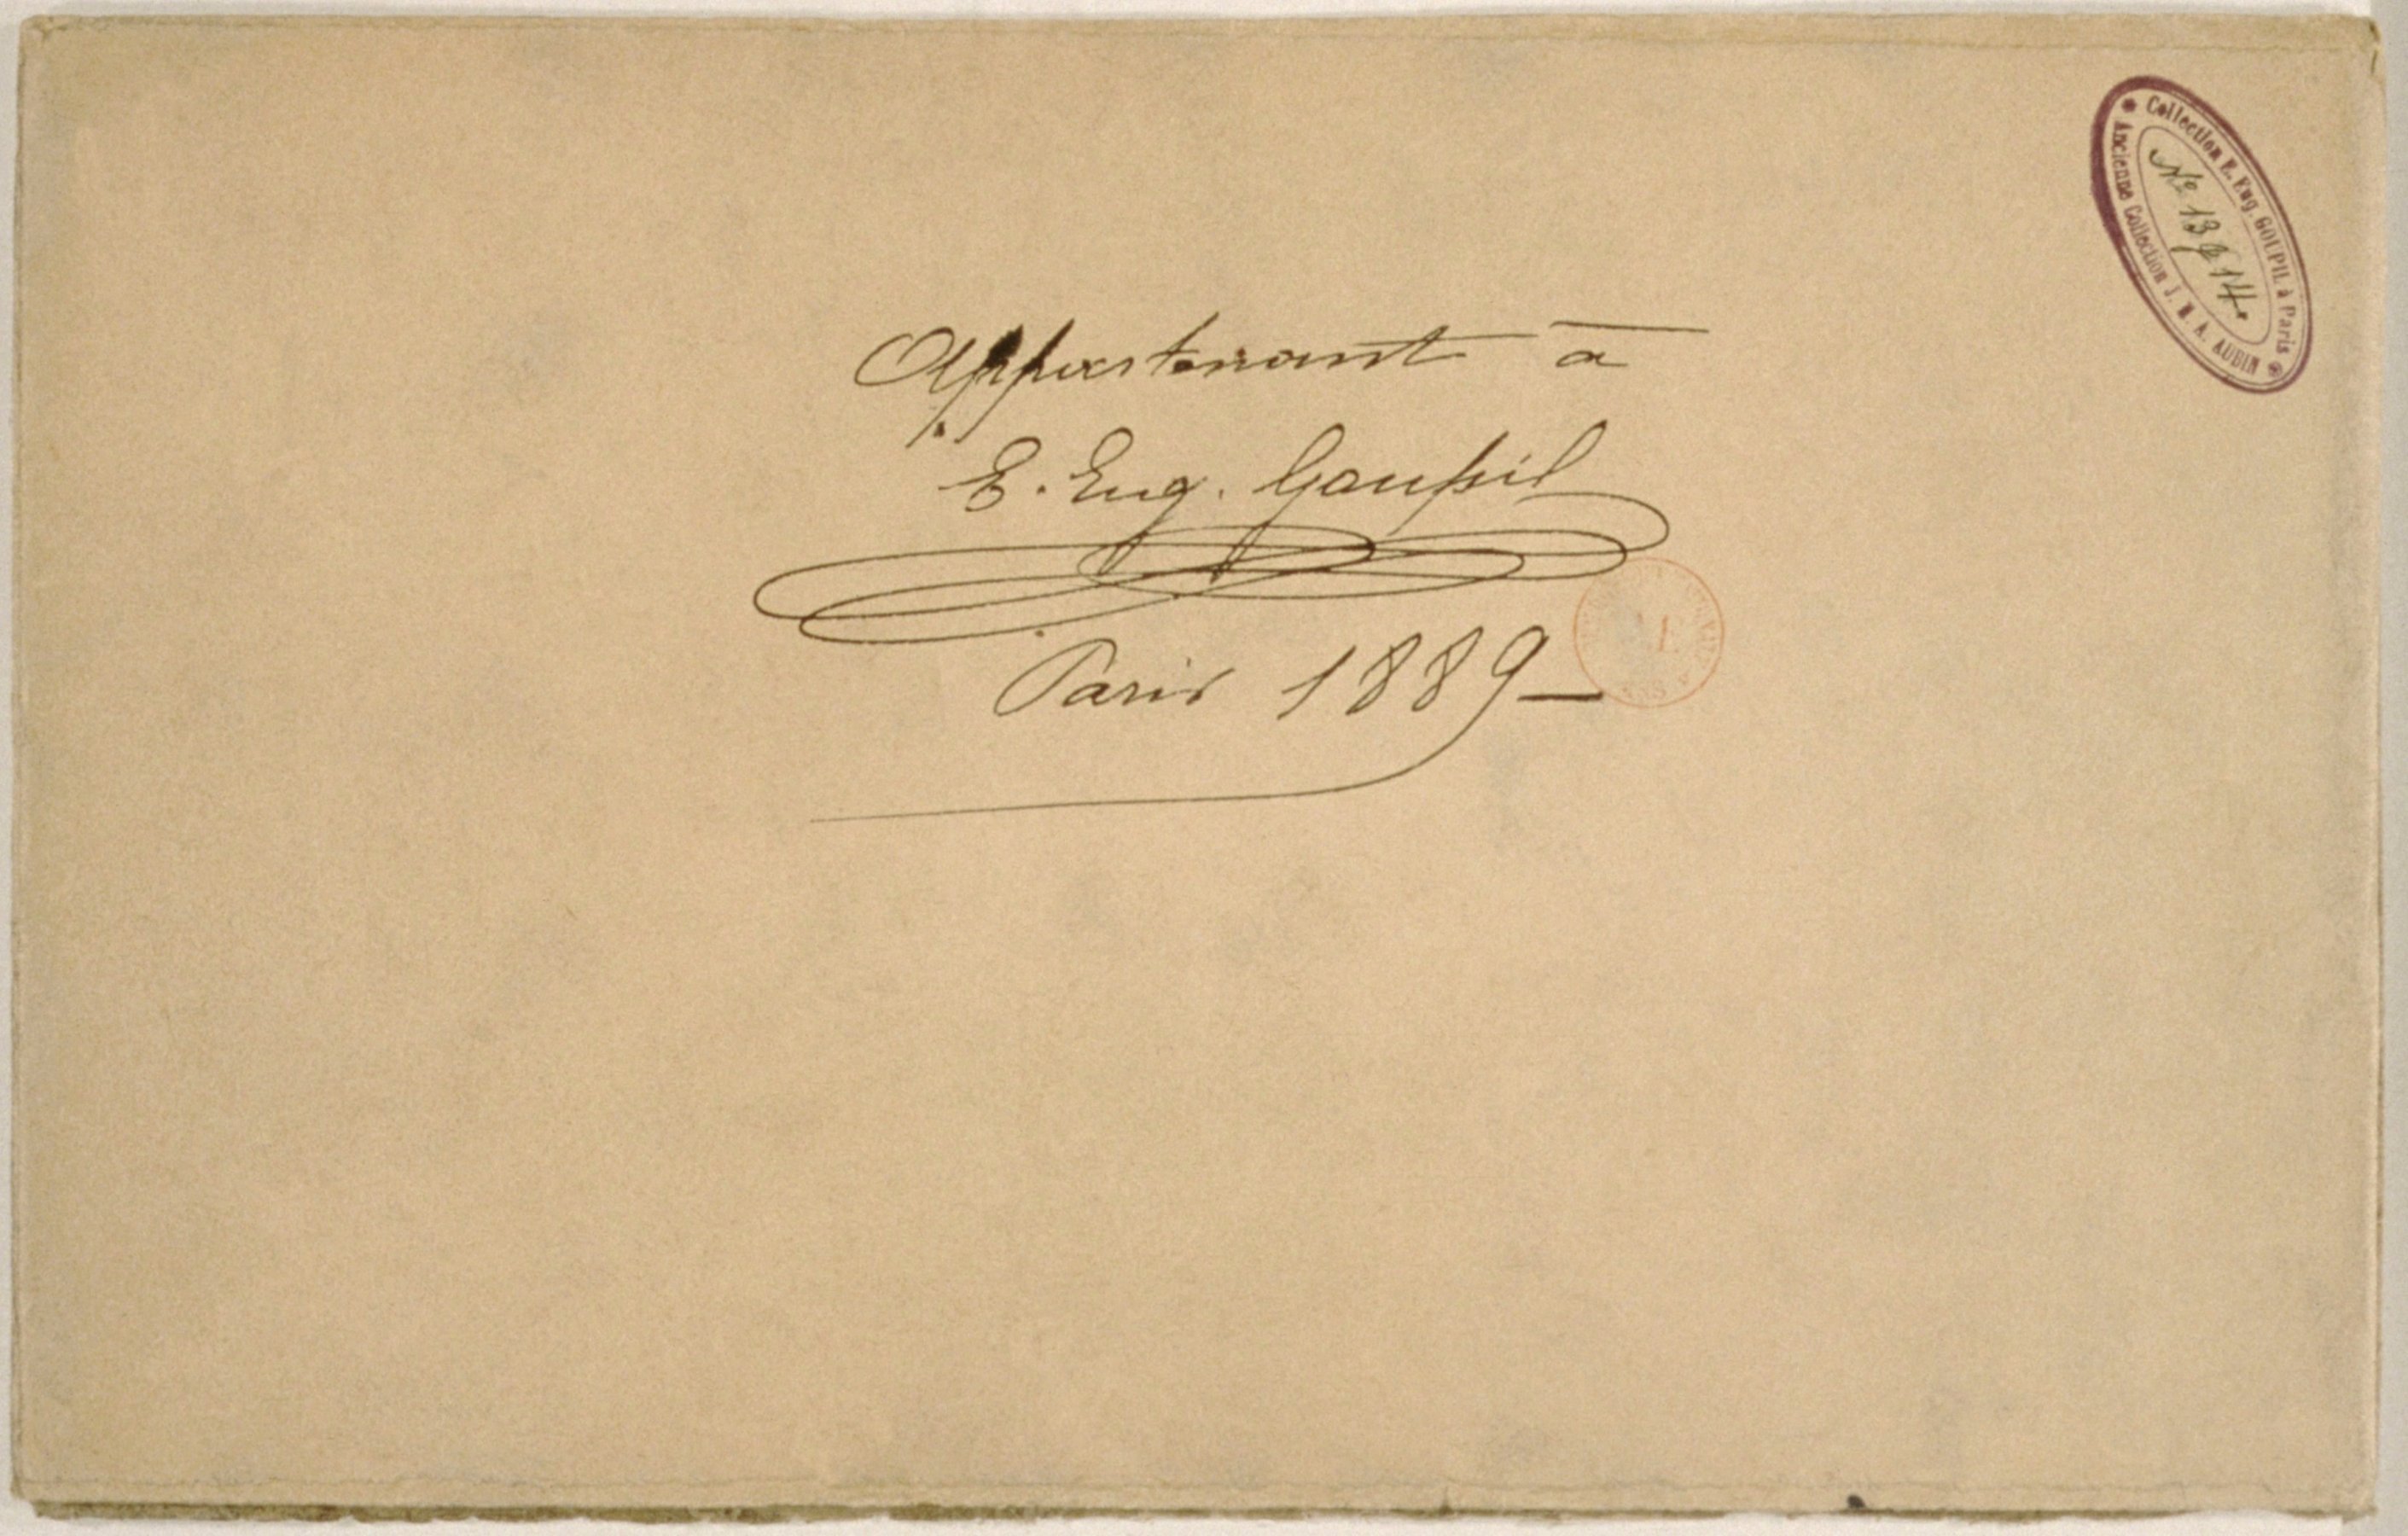 Appartenant à
E. Eug. Goupil
Paris 1889
Collection E. Eug. GOUPIL à Paris
Ancienne Collection J. M. A. AUBIN
Nº 13 & 14.